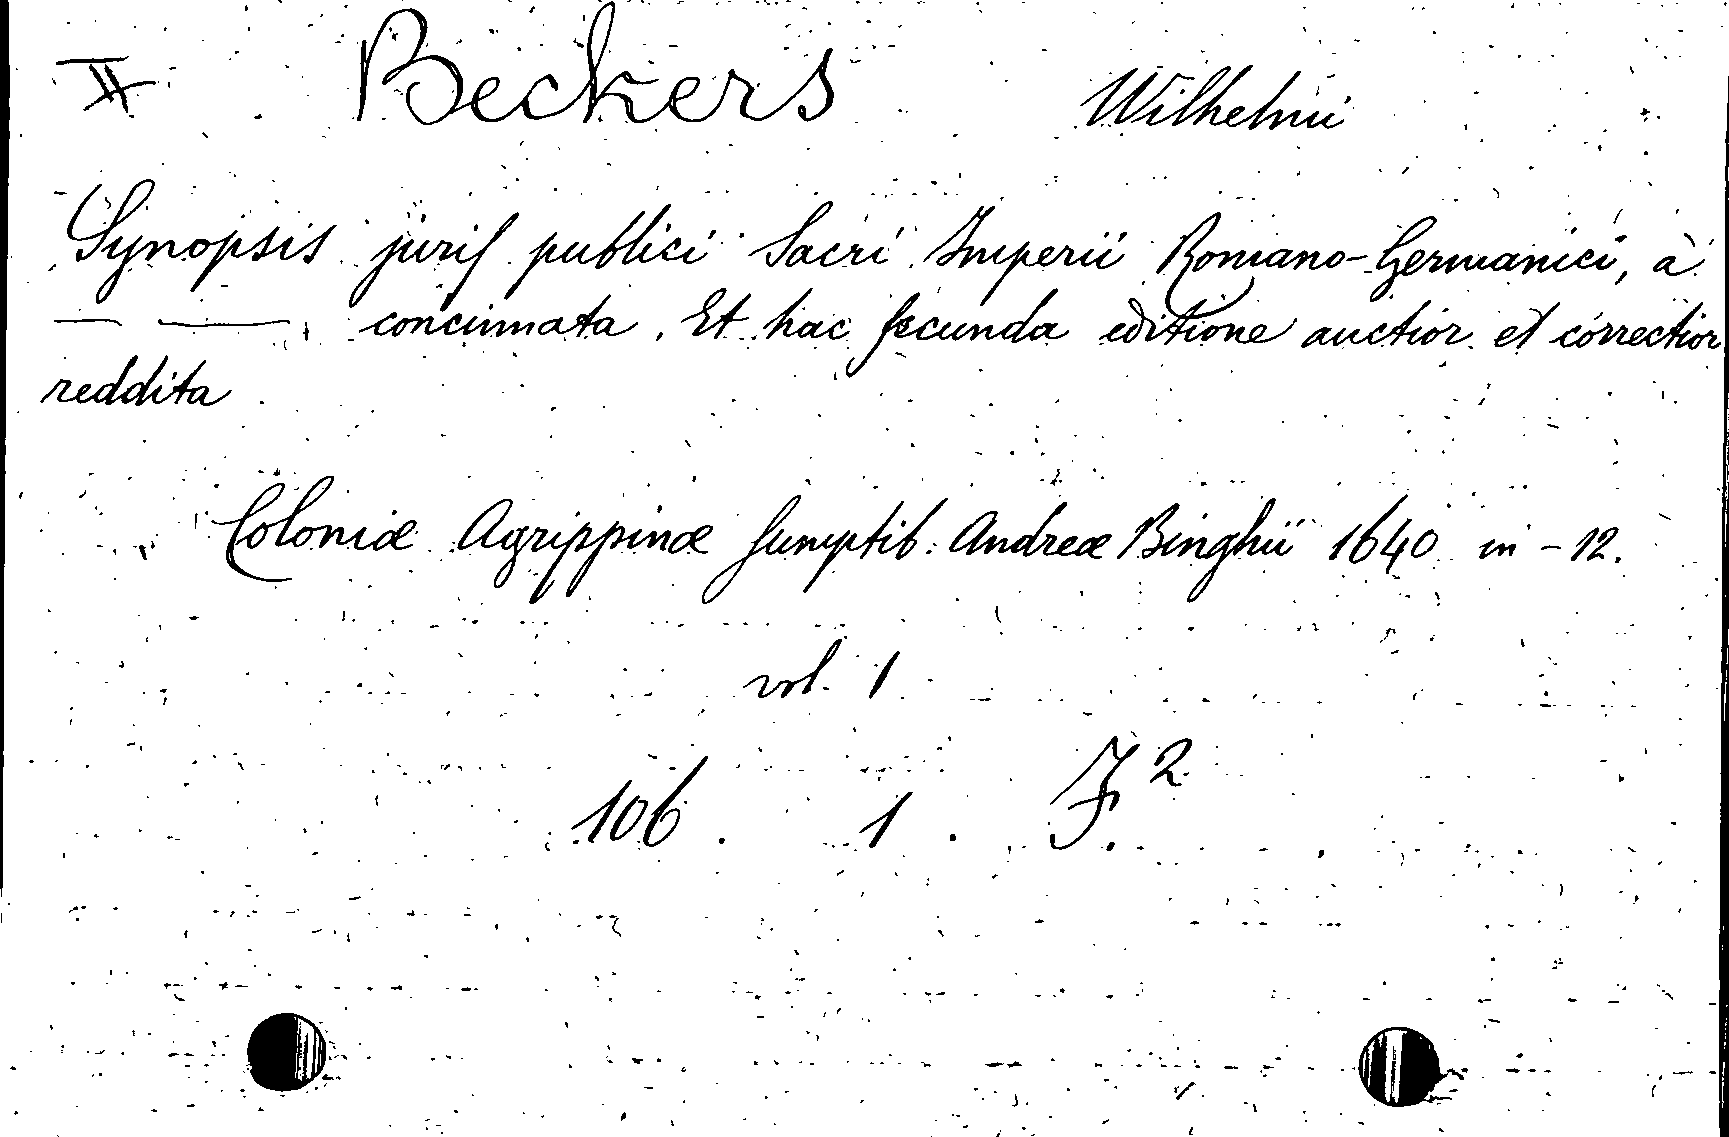 II Beckers Wilhelmi
Synopsis juriſ publici Sacri Imperii Romano-Germanici, à
— —, concinnata. Et hac ſecunda editione auctior et correctior
reddita
Coloniæ Agrippinæ ſumptib. Andreæ Binghii 1640 in-12.
vol. 1
106. 1. F.²